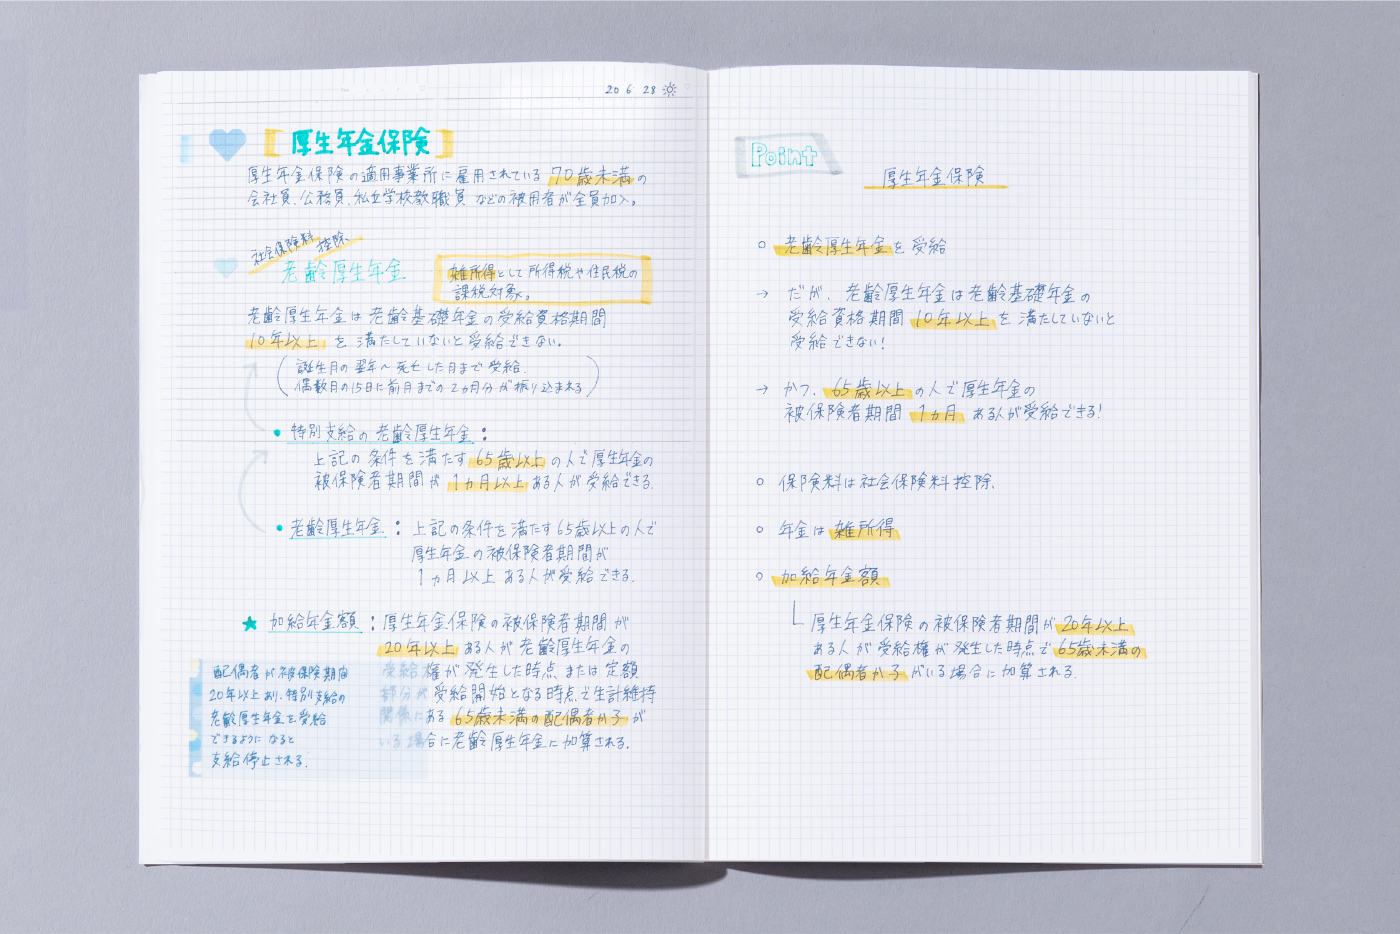 20 6 28
厚生年金保険
厚生年金保険の適用事業所に雇用されている 70歳未満の
会社員、公務員、私立学校教職員 などの被用者が全員加入。
社会保険料控除、
老齢厚生年金
雑所得として所得税や住民税の
課税対象。
老齢厚生年金は老齢基礎年金の受給資格期間
10年以上 を満たしていないと受給できない。
(誕生月の翌年〜死亡した月まで受給.
偶数月の15日に前月までの2ヵ月分が振り込まれる)
・特別支給の老齢厚生年金:
上記の条件を満たす65歳以上の人で厚生年金の
被保険者期間が 1ヵ月以上ある人が受給できる.
・老齢厚生年金:上記の条件を満たす65歳以上の人で
厚生年金の被保険者期間が
1ヵ月以上 ある人が受給できる.
★ 加給年金額:厚生年金保険の被保険者期間が
20年以上ある人が老齢厚生年金の
受給権が発生した時点または定額
部分が受給開始となる時点で生計維持
関係にある 65歳未満の配偶者か子が
いる場合に老齢厚生年金に加算される.
配偶者が被保険期間
20年以上あり、特別支給の
老齢厚生年金を受給
できるようになると
支給停止される.
Point
厚生年金保険
○ 老齢厚生年金を受給
→ だが、老齢厚生年金は老齢基礎年金の
受給資格期間 10年以上を満たしていないと
受給できない!
→ かつ、65歳以上の人で厚生年金の
被保険者期間 1ヵ月 ある人が受給できる!
○ 保険料は社会保険料控除、
○ 年金は雑所得
○ 加給年金額
└ 厚生年金保険の被保険者期間が20年以上
ある人が受給権が発生した時点で65歳未満の
配偶者か子がいる場合に加算される.